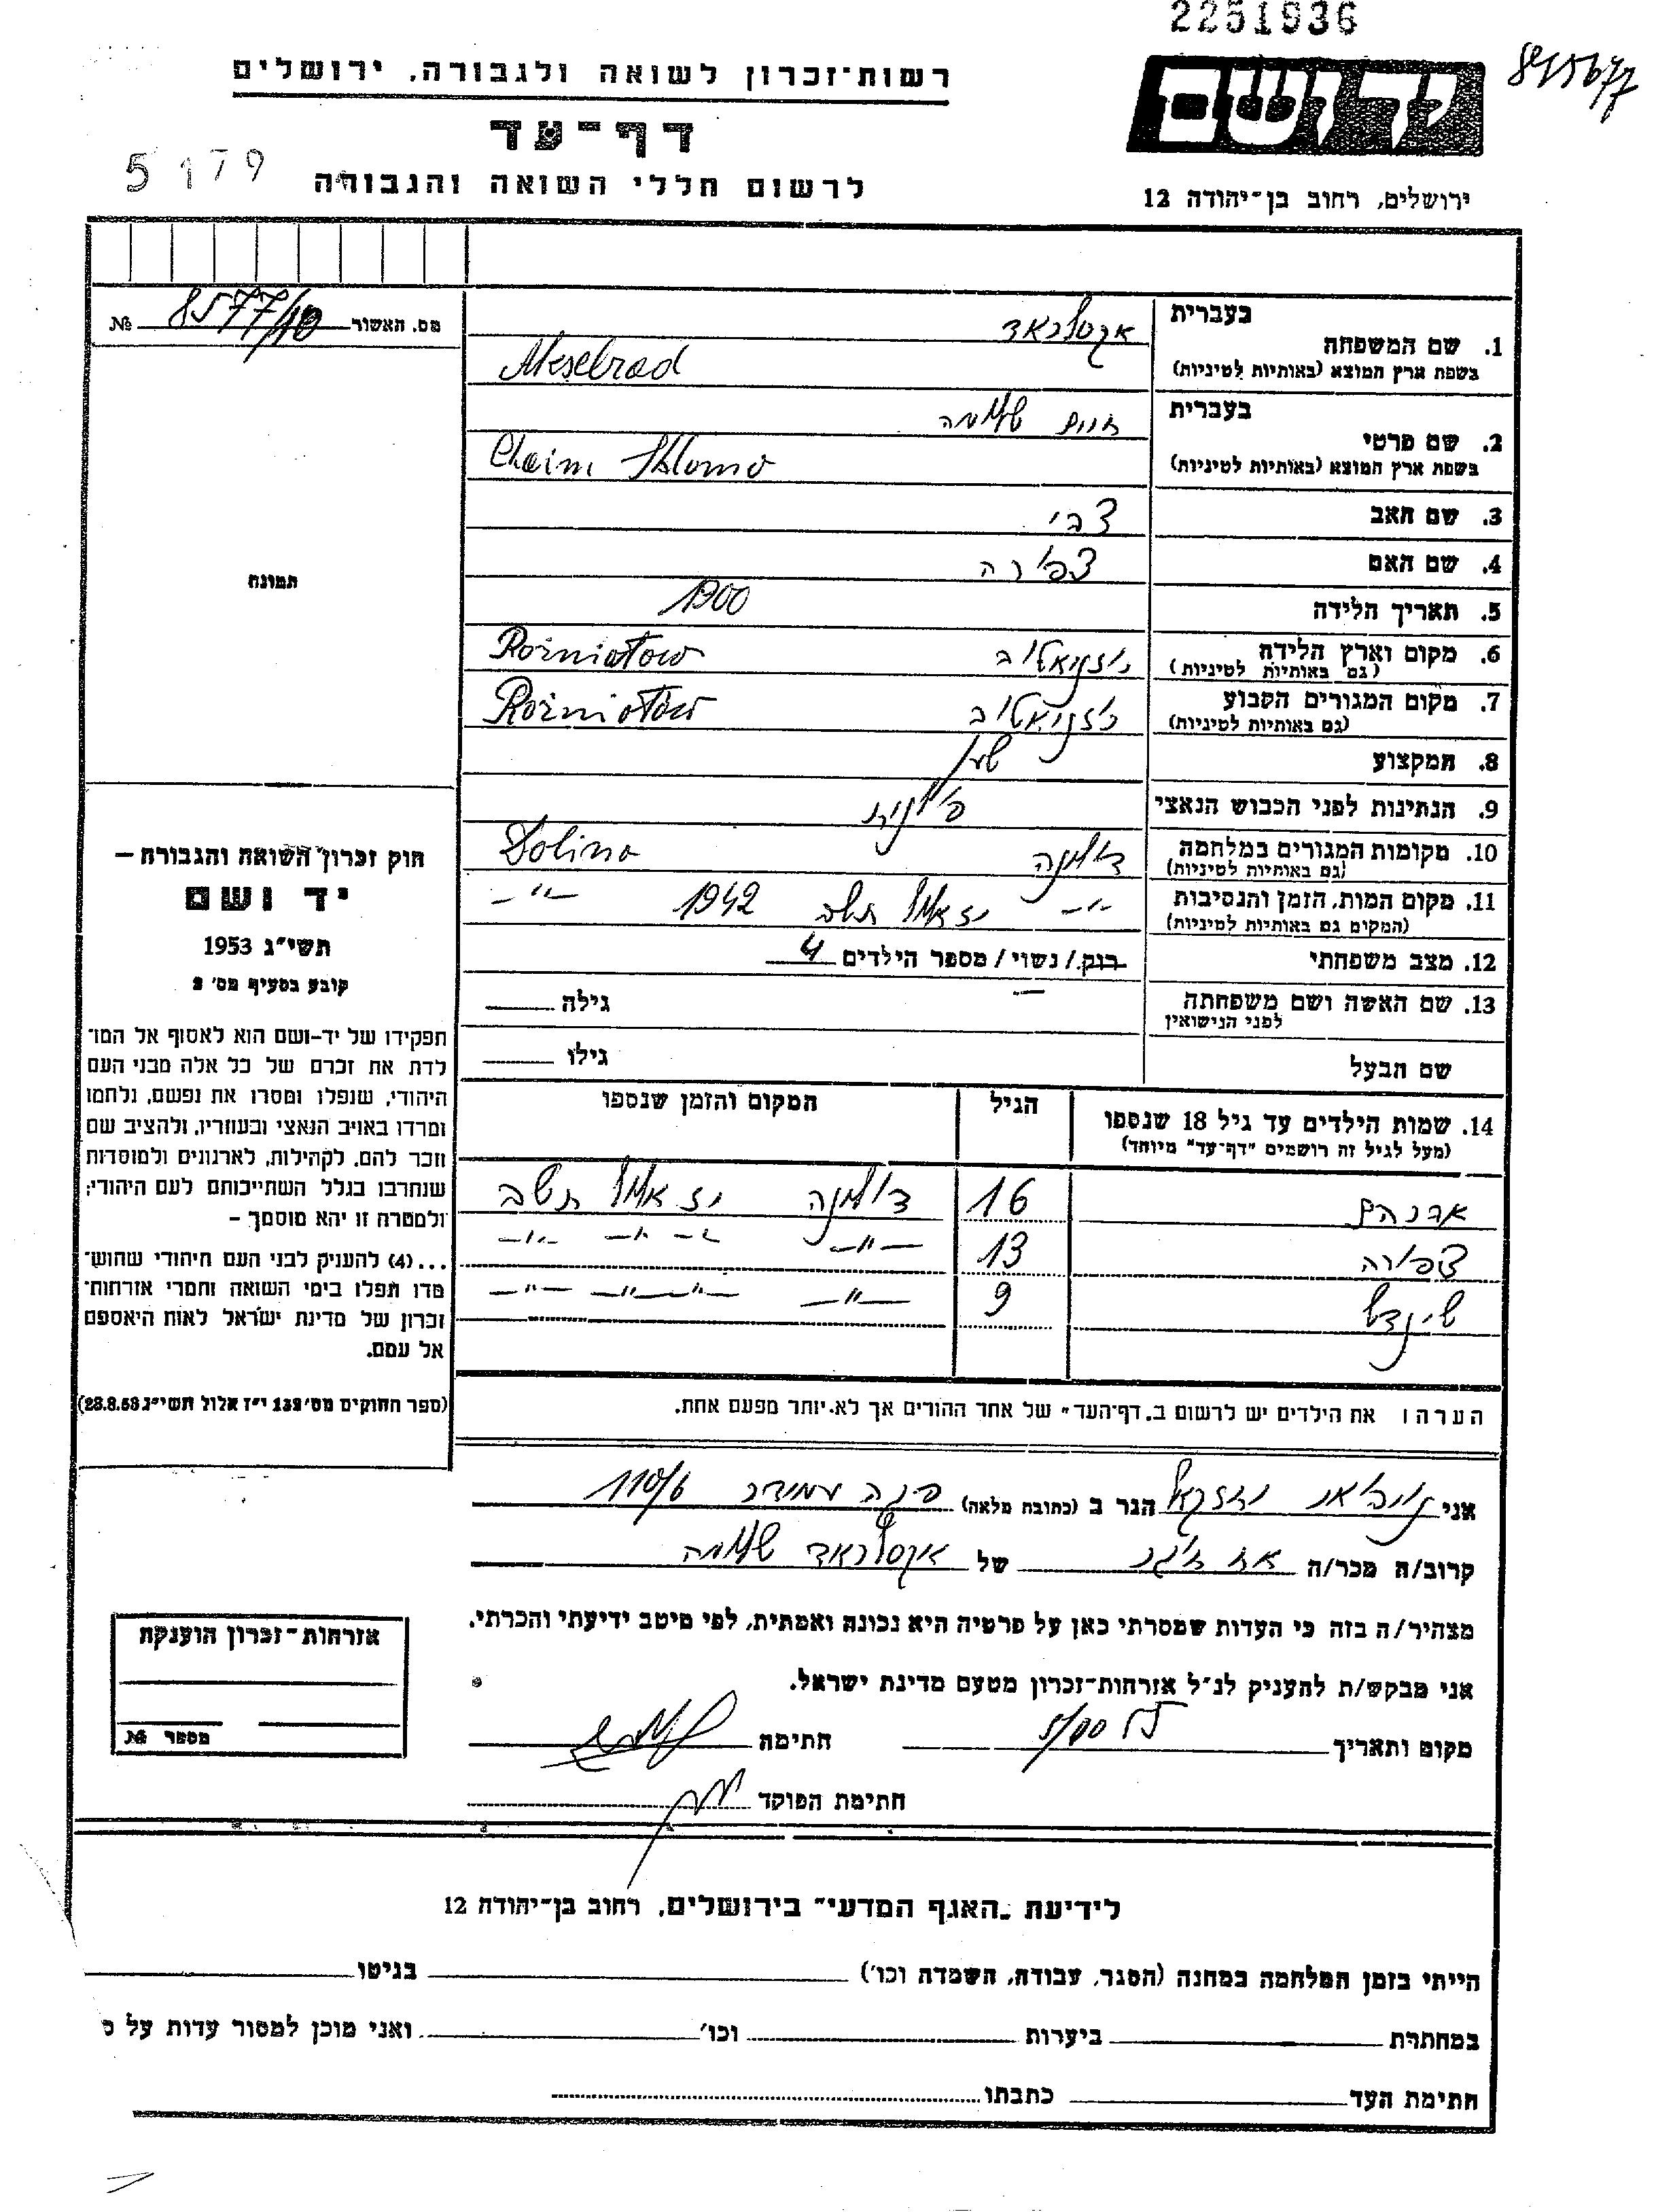 2251936
845677
יד ושם
ירושלים, רחוב בן־יהודה 12
רשות־זכרון לשואה ולגבורה, ירושלים
דף־עד
לרשום חללי השואה והגבורה
5179
מס. האשור № 8577/10
תמונה
בעברית
1. שם המשפחה אקסלראד
בשפת ארץ המוצא (באותיות לטיניות) Akselrad
בעברית
2. שם פרטי חיים שלמה
בשפת ארץ המוצא (באותיות לטיניות) Chaim Shlomo
3. שם האב צבי
4. שם האם צפורה
5. תאריך הלידה 1900
6. מקום וארץ הלידה רוזניאטוב Rożniatow
(גם באותיות לטיניות)
7. מקום המגורים הקבוע רוזניאטוב Rożniatów
(גם באותיות לטיניות)
8. המקצוע
9. הנתינות לפני הכבוש הנאצי פולנית
10. מקומות המגורים במלחמה דולינה Dolina
(גם באותיות לטיניות)
11. מקום המות, הזמן והנסיבות -"- יז אלול תש"ב 1942 -"-
(המקום גם באותיות לטיניות)
12. מצב משפחתי רוק / נשוי / מספר הילדים 4
13. שם האשה ושם משפחתה — גילה
לפני הנישואין
שם הבעל גילו
14. שמות הילדים עד גיל 18 שנספו הגיל המקום והזמן שנספו
(מעל לגיל זה רושמים "דף־עד" מיוחד)
אברהם 16 דולינה יז אלול תש"ב
צפורה 13 -"- -"- -"- -"-
שינדל 9 -"- -"- -"- -"-
הערה: את הילדים יש לרשום ב"דף־העד" של אחד ההורים אך לא יותר מפעם אחת.
חוק זכרון השואה והגבורה –
יד ושם
תשי"ג 1953
קובע בסעיף מס' 2
תפקידו של יד־ושם הוא לאסוף אל המו־
לדת את זכרם של כל אלה מבני העם
היהודי, שנפלו ומסרו את נפשם, נלחמו
ומרדו באויב הנאצי ובעוזריו, ולהציב שם
וזכר להם, לקהילות, לארגונים ולמוסדות
שנחרבו בגלל השתייכותם לעם היהודי;
ולמטרה זו יהא מוסמך –
...(4) להעניק לבני העם היהודי שהוש־
מדו ונפלו בימי השואה והמרי אזרחות־
זכרון של מדינת ישראל לאות היאספם
אל עמם.
(ספר החוקים מס' 132 י"ז אלול תשי"ג 28.8.53)
אני יחזקאל הגר ב (כתובת מלאה) 110/6
קרוב/ה מכר/ה של אקסלראד שלמה
מצהיר/ה בזה כי העדות שמסרתי כאן על פרטיה היא נכונה ואמתית, לפי מיטב ידיעתי והכרתי.
אני מבקש/ת להעניק לנ"ל אזרחות־זכרון מטעם מדינת ישראל.
מקום ותאריך חתימה
חתימת הפוקד
אזרחות־זכרון הוענקה
מספר №
לידיעת "האגף המדעי" בירושלים, רחוב בן־יהודה 12
הייתי בזמן המלחמה במחנה (הסגר, עבודה, השמדה וכו') בגיטו
במחתרת ביערות וכו' ואני מוכן למסור עדות על כ
חתימת העד כתבתו